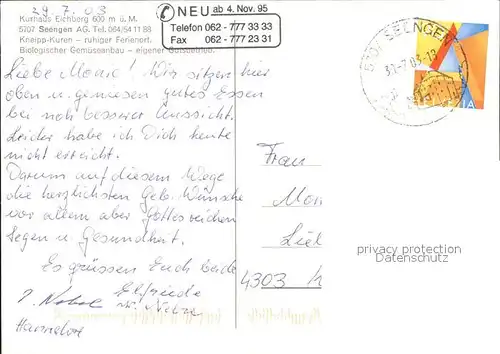 29.7.03
Kurhaus Eichberg 600 m ü. M.
5707 Seengen AG Tel. 064/54 11 88
Kneipp-Kuren - ruhiger Ferienort.
Biologischer Gemüseanbau - eigener Gutsbetrieb.
NEU ab 4. Nov. 95
Telefon 062 - 777 33 33
Fax 062 - 777 23 31
5707 SEENGEN
30.-7.03-13
Liebe Monic! Wir sitzen hier
oben u. geniesen gutes Essen
bei noch besserer Aussicht.
Leider habe ich Dich heute
nicht erreicht.
Darum auf diesem Wege
die herzlichsten Geb. Wünsche
vor allem aber Gottes reichen
Segen u. Gesundheit.
Es grüssen Euch beide
Elfriede
Hannelore
Frau
Mon
Lieb
4303
privacy protection
Datenschutz